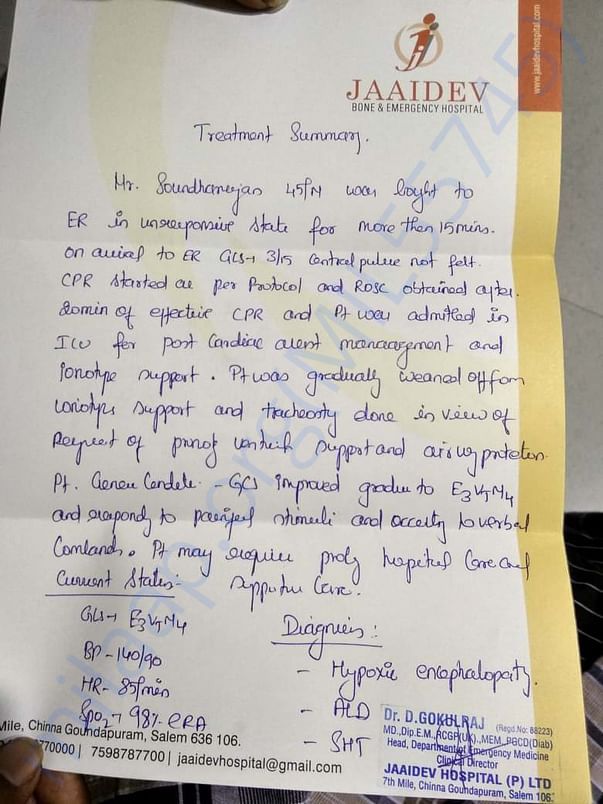 www.jaaidevhospital.com
JAAIDEV
BONE & EMERGENCY HOSPITAL
Treatment Summary.
Mr. Soundharrajan 45/M was bought to
ER in unresponsive state for more than 15mins.
On arrival to ER GCS→ 3/15 Central pulse not felt.
CPR started as per Protocol and ROSC obtained after
20min of effective CPR and Pt was admitted in
ICU for post cardiac arrest management and
Ionotype support. Pt was gradually weaned off from
support and done in view of
support and airway protection.
Pt. GCS improved to E3VTM4
and respond to painful stimuli and to verbal
Commands. Pt may require hospital care and
supportive care.
Current Status:-
GCS→ E3VTM4
BP-140/90
HR-85/min
SpO2→ 98% @RA
Diagnosis:
- Hypoxic encephalopathy.
- ALD
- SHT
Dr. D.GOKULRAJ (Regd.No: 88223)
MD.,Dip.E.M.,RCGP(UK).,MEM.,PGCD(Diab)
Head, Department of Emergency Medicine
Clinical Director
JAAIDEV HOSPITAL (P) LTD
7th Mile, Chinna Goundapuram, Salem 106.
Mile, Chinna Goundapuram, Salem 636 106.
770000 | 7598787700 | jaaidevhospital@gmail.com